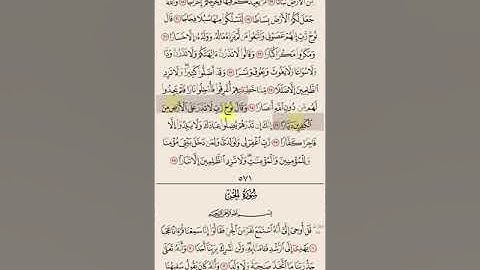 مِّنَ ٱلْأَرْضِ نَبَاتًا ثُمَّ يُعِيدُكُمْ فِيهَا وَيُخْرِجُكُمْ إِخْرَاجًا
جَعَلَ لَكُمُ ٱلْأَرْضَ بِسَاطًا ١٩ لِّتَسْلُكُوا۟ مِنْهَا سُبُلًا فِجَاجًا ٢٠ قَالَ
نُوحٌ رَّبِّ إِنَّهُمْ عَصَوْنِى وَٱتَّبَعُوا۟ مَن لَّمْ يَزِدْهُ مَالُهُۥ وَوَلَدُهُۥٓ إِلَّا خَسَارًا ٢١
وَمَكَرُوا۟ مَكْرًا كُبَّارًا ٢٢ وَقَالُوا۟ لَا تَذَرُنَّ ءَالِهَتَكُمْ وَلَا تَذَرُنَّ وَدًّا
وَلَا سُوَاعًا وَلَا يَغُوثَ وَيَعُوقَ وَنَسْرًا ٢٣ وَقَدْ أَضَلُّوا۟ كَثِيرًا وَلَا تَزِدِ
ٱلظَّٰلِمِينَ إِلَّا ضَلَٰلًا ٢٤ مِّمَّا خَطِيٓـَٰٔتِهِمْ أُغْرِقُوا۟ فَأُدْخِلُوا۟ نَارًا فَلَمْ يَجِدُوا۟
لَهُم مِّن دُونِ ٱللَّهِ أَنصَارًا ٢٥ وَقَالَ نُوحٌ رَّبِّ لَا تَذَرْ عَلَى ٱلْأَرْضِ مِنَ
ٱلْكَٰفِرِينَ دَيَّارًا ٢٦ إِنَّكَ إِن تَذَرْهُمْ يُضِلُّوا۟ عِبَادَكَ وَلَا يَلِدُوٓا۟ إِلَّا
فَاجِرًا كَفَّارًا ٢٧ رَّبِّ ٱغْفِرْ لِى وَلِوَٰلِدَىَّ وَلِمَن دَخَلَ بَيْتِىَ مُؤْمِنًا
وَلِلْمُؤْمِنِينَ وَٱلْمُؤْمِنَٰتِ وَلَا تَزِدِ ٱلظَّٰلِمِينَ إِلَّا تَبَارًۢا ٢٨
٥٧١
سُورَةُ الجِنِّ
بِسْمِ ٱللَّهِ ٱلرَّحْمَٰنِ ٱلرَّحِيمِ
قُلْ أُوحِىَ إِلَىَّ أَنَّهُ ٱسْتَمَعَ نَفَرٌ مِّنَ ٱلْجِنِّ فَقَالُوٓا۟ إِنَّا سَمِعْنَا قُرْءَانًا عَجَبًا
١ يَهْدِىٓ إِلَى ٱلرُّشْدِ فَـَٔامَنَّا بِهِۦ وَلَن نُّشْرِكَ بِرَبِّنَآ أَحَدًا ٢ وَأَنَّهُۥ تَعَٰلَىٰ
جَدُّ رَبِّنَا مَا ٱتَّخَذَ صَٰحِبَةً وَلَا وَلَدًا ٣ وَأَنَّهُۥ كَانَ يَقُولُ سَفِيهُنَا